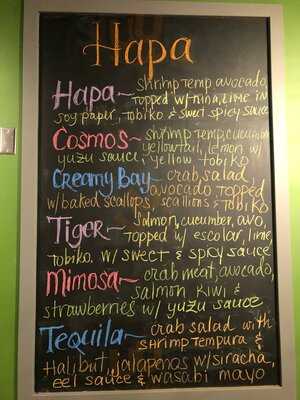 Hapa
Hapa~ shrimp temp, avocado,
topped w/ tuna, lime in
soy paper, tobiko & sweet spicy sauce
Cosmos~ shrimp temp, cucumber
yellowtail, lemon w/
yuzu sauce, yellow tobiko
Creamy Bay~ crab salad,
avocado topped
w/ baked scallops, scallions & tobiko
Tiger~ salmon, cucumber, avo,
topped w/ escolar, lime,
tobiko. w/ sweet & spicy sauce
Mimosa~ crab meat, avocado,
salmon kiwi &
strawberries w/ yuzu sauce
Tequila~ crab salad with
shrimp tempura &
Halibut, jalapenos w/ siracha,
eel sauce & wasabi mayo